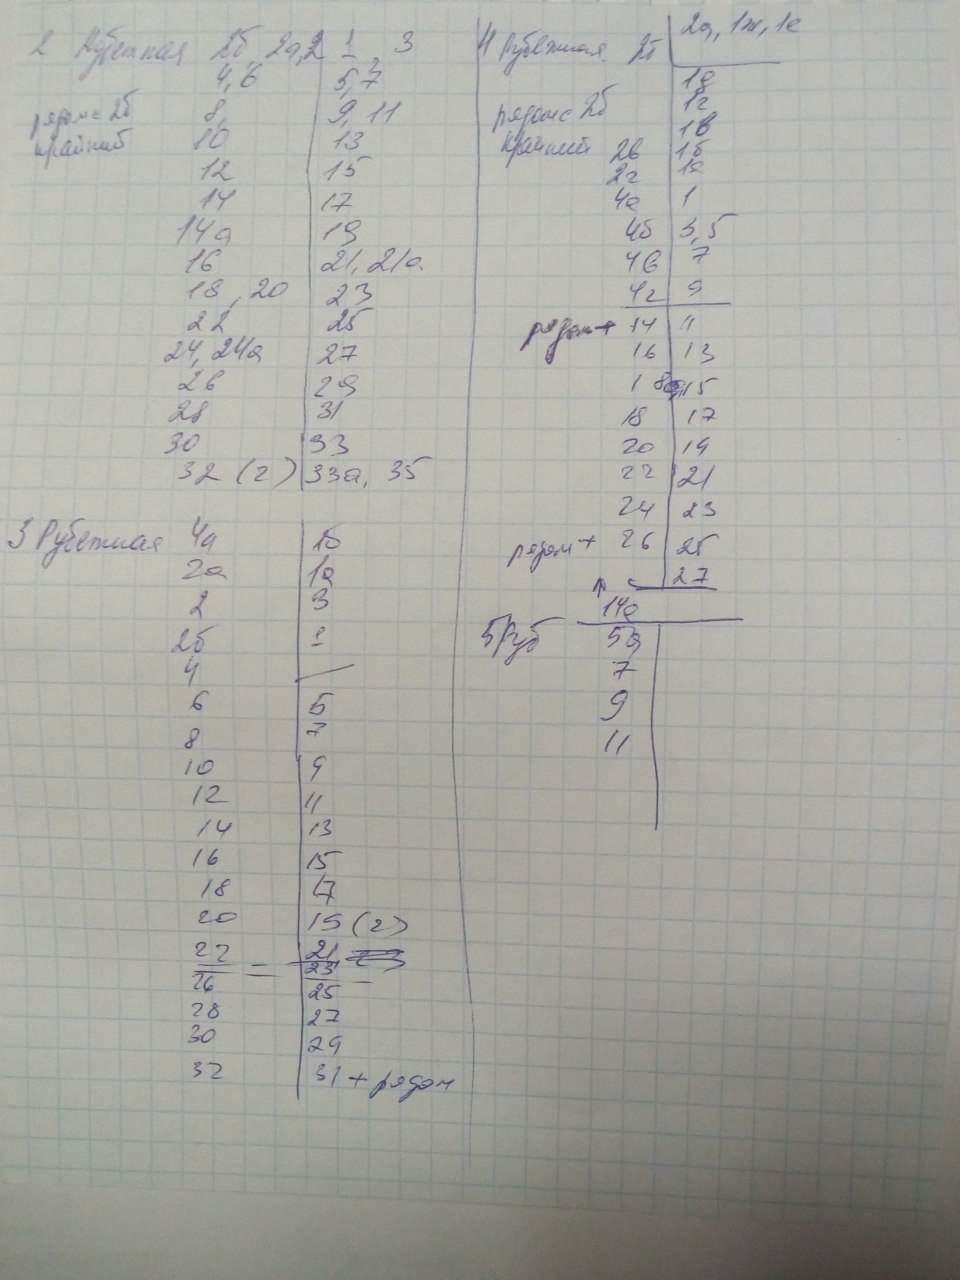 2 Рубежная 2б, 2а, 2 1 3
4, 6 5, 7
рядом с 2б 8, 9, 11
крайний 10 13
12 15
14 17
14а 19
16 21, 21а
18, 20 23
22 25
24, 24а 27
26 29
28 31
30 33
32 (2) 33а, 35
3 Рубежная 4а 1б
2а 1а
2 3
2б 1
4 —
6 5
8 7
10 9
12 11
14 13
16 15
18 17
20 19 (2)
22 21
23
26 25
28 27
30 29
32 31 + рядом
4 Рубежная 2б 2а, 1ж, 1е
1д
рядом с 2б 1г
1в
крайний 2в 1б
2г 1а
4а 1
4б 3, 5
4в 7
4г 9
рядом + 14 11
16 13
1 15
18 17
20 19
22 21
24 23
рядом + 26 25
27
14а
5 Руб 5а
7
9
11